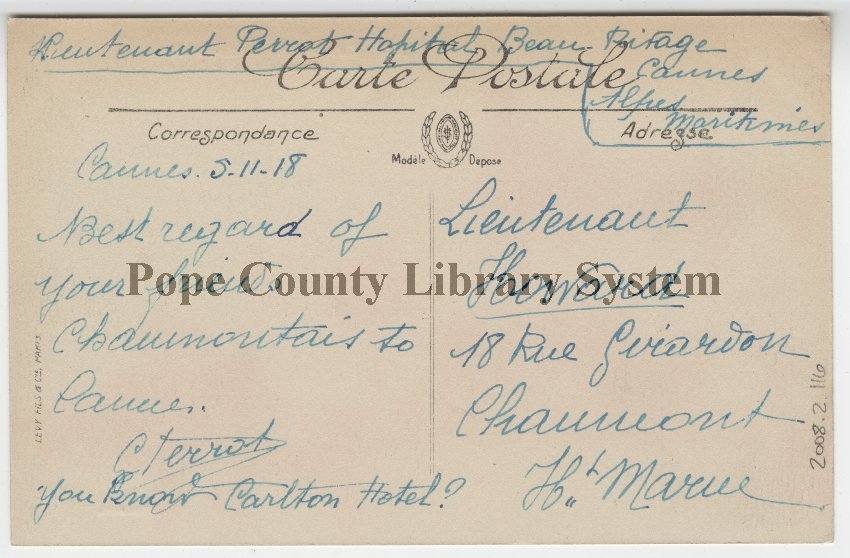 Lieutenant Perrot Hopital Beau-Rivage
Cannes
Alpes
Maritimes
Carte Postale
Correspondance
Adresse
Modèle Déposé
Cannes. 5-11-18
Best regard of
your friends
Chaumontais to
Cannes.
C Perrot
You know Carlton Hotel?
Lieutenant
Howard
18 Rue Girardon
Chaumont
Hte Marne
Pope County Library System
LEVY FILS & Cie, PARIS
2008.2.116